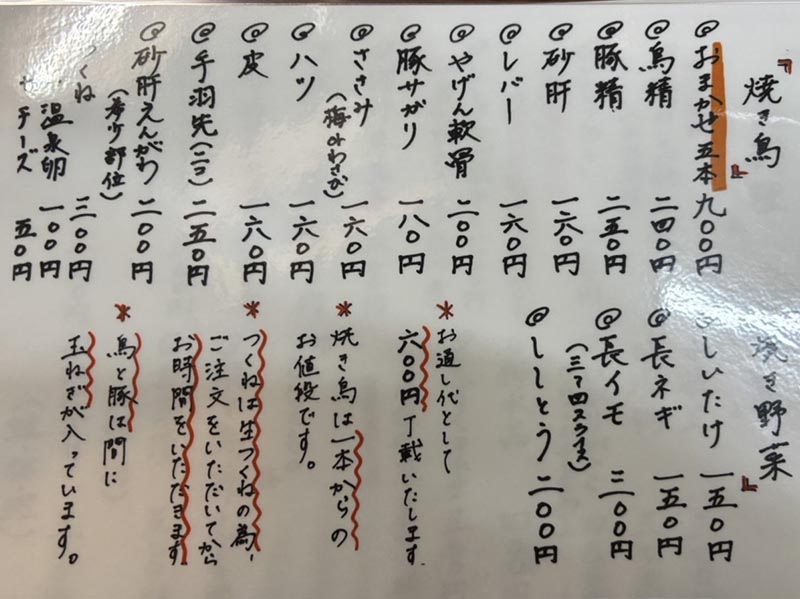 『焼き鳥』
@おまかせ五本 九〇〇円
@鳥精 二四〇円
@豚精 二五〇円
@砂肝 一六〇円
@レバー 一六〇円
@やげん軟骨 二〇〇円
@豚サガリ 一八〇円
@ささみ 一六〇円
(梅orわさび)
@ハツ 一六〇円
@皮 一六〇円
@手羽先(二コ) 二五〇円
@砂肝えんがわ 二〇〇円
(希少部位)
つくね 三〇〇円
温泉卵 一〇〇円
チーズ 五〇円
焼き野菜』
しいたけ 一五〇円
@長ネギ 一五〇円
@長イモ 三〇〇円
(三〜四スライス)
@ししとう 二〇〇円
*お通し代として
六〇〇円丁載いたします。
*焼き鳥は一本からの
お値段です。
*つくねは生つくねの為、
ご注文をいただいてから
お時間をいただきます
*鳥と豚は間に
玉ねぎが入っています。